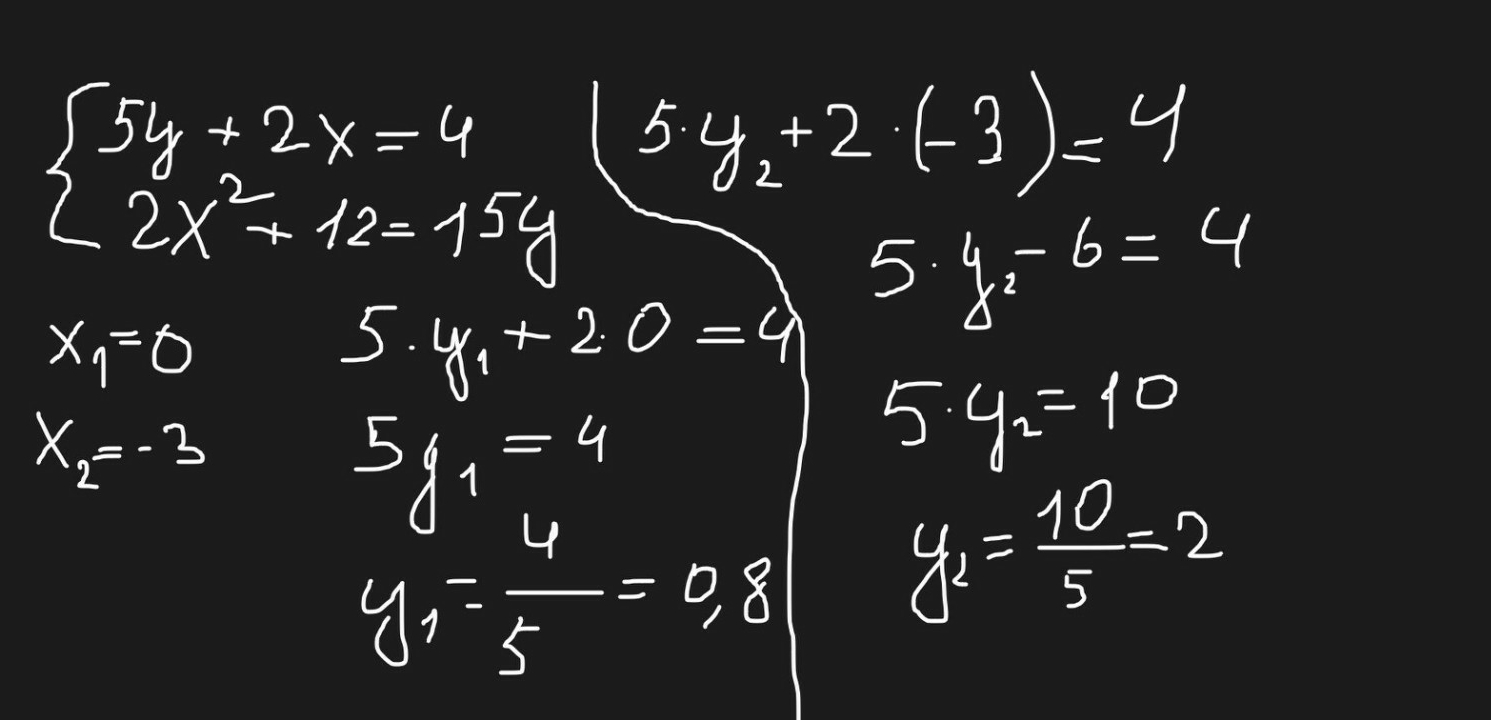 {5y + 2x = 4
2x² + 12 = 15y
x₁ = 0
x₂ = -3
5 · y₁ + 2 · 0 = 4
5y₁ = 4
y₁ = 4/5 = 0,8
5 · y₂ + 2 · (-3) = 4
5 · y₂ - 6 = 4
5 · y₂ = 10
y₂ = 10/5 = 2